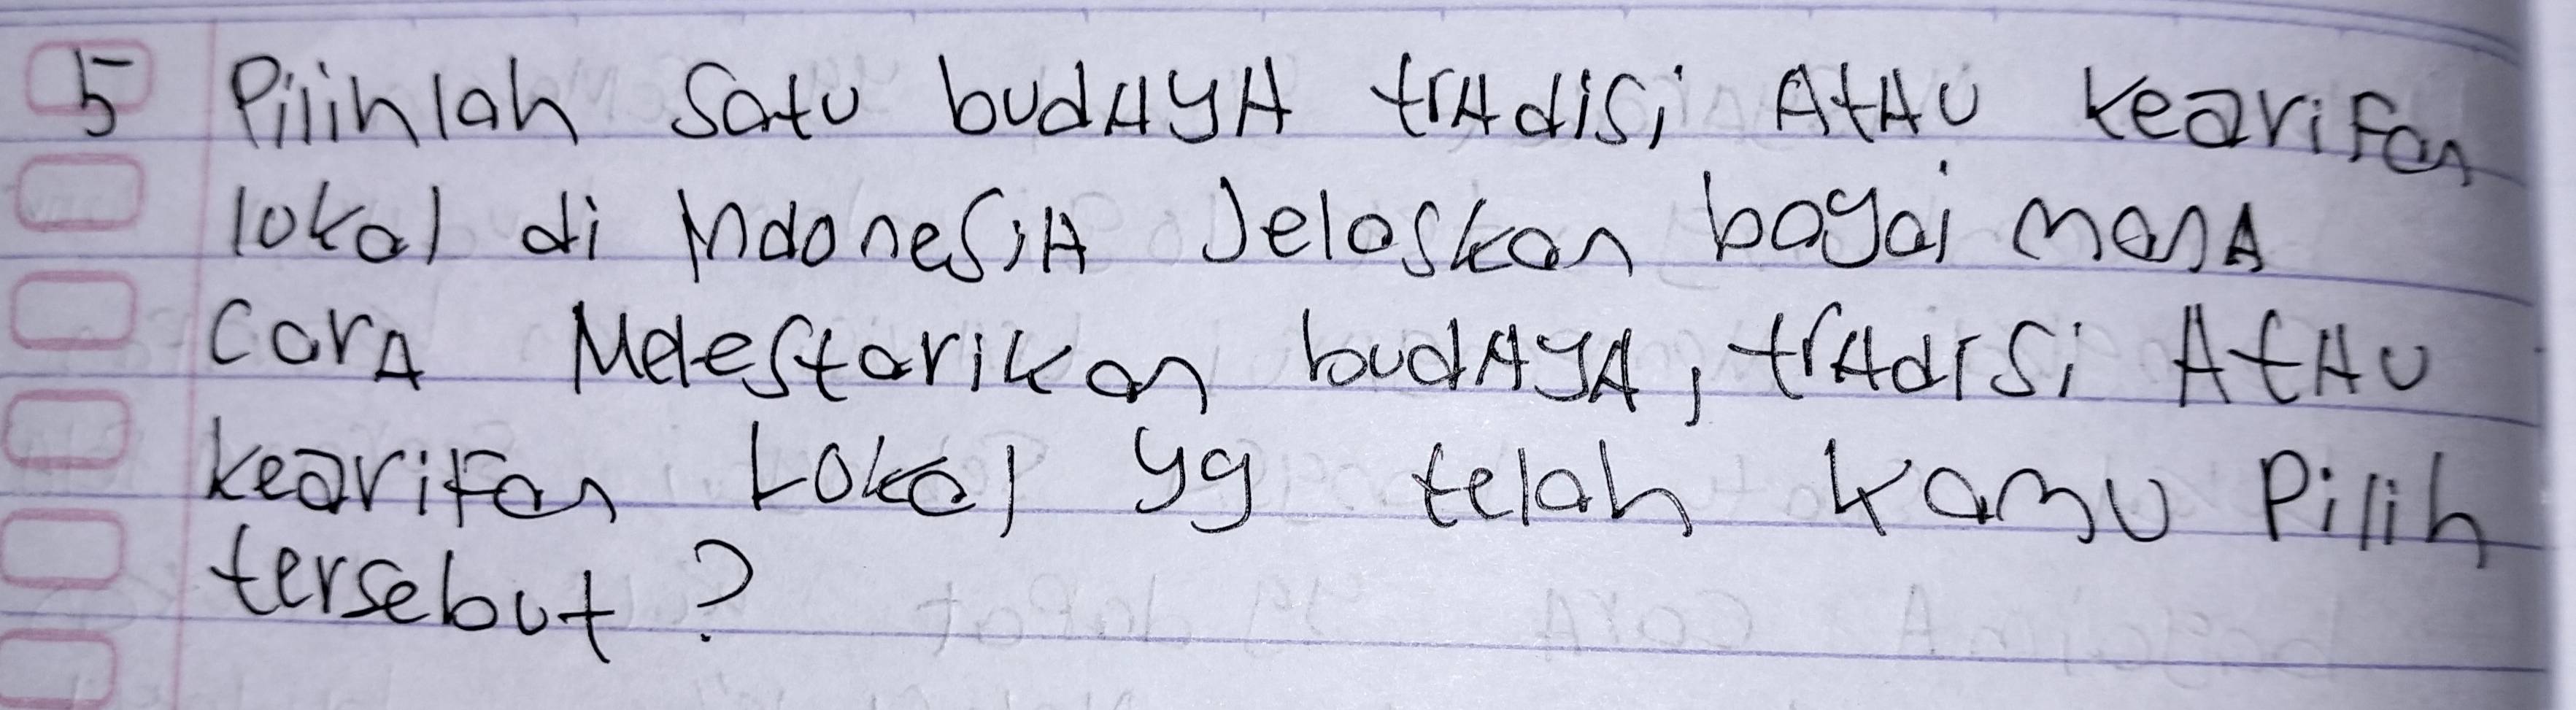 5 Pilihlah satu budAyA trAdisi AtAu kearifan
lokal di IndonesiA Jelaskan bagai manA
carA Melestarikan budAyA, trAdisi AtAu
kearifan Lokal yg telah kamu Pilih
tersebut?